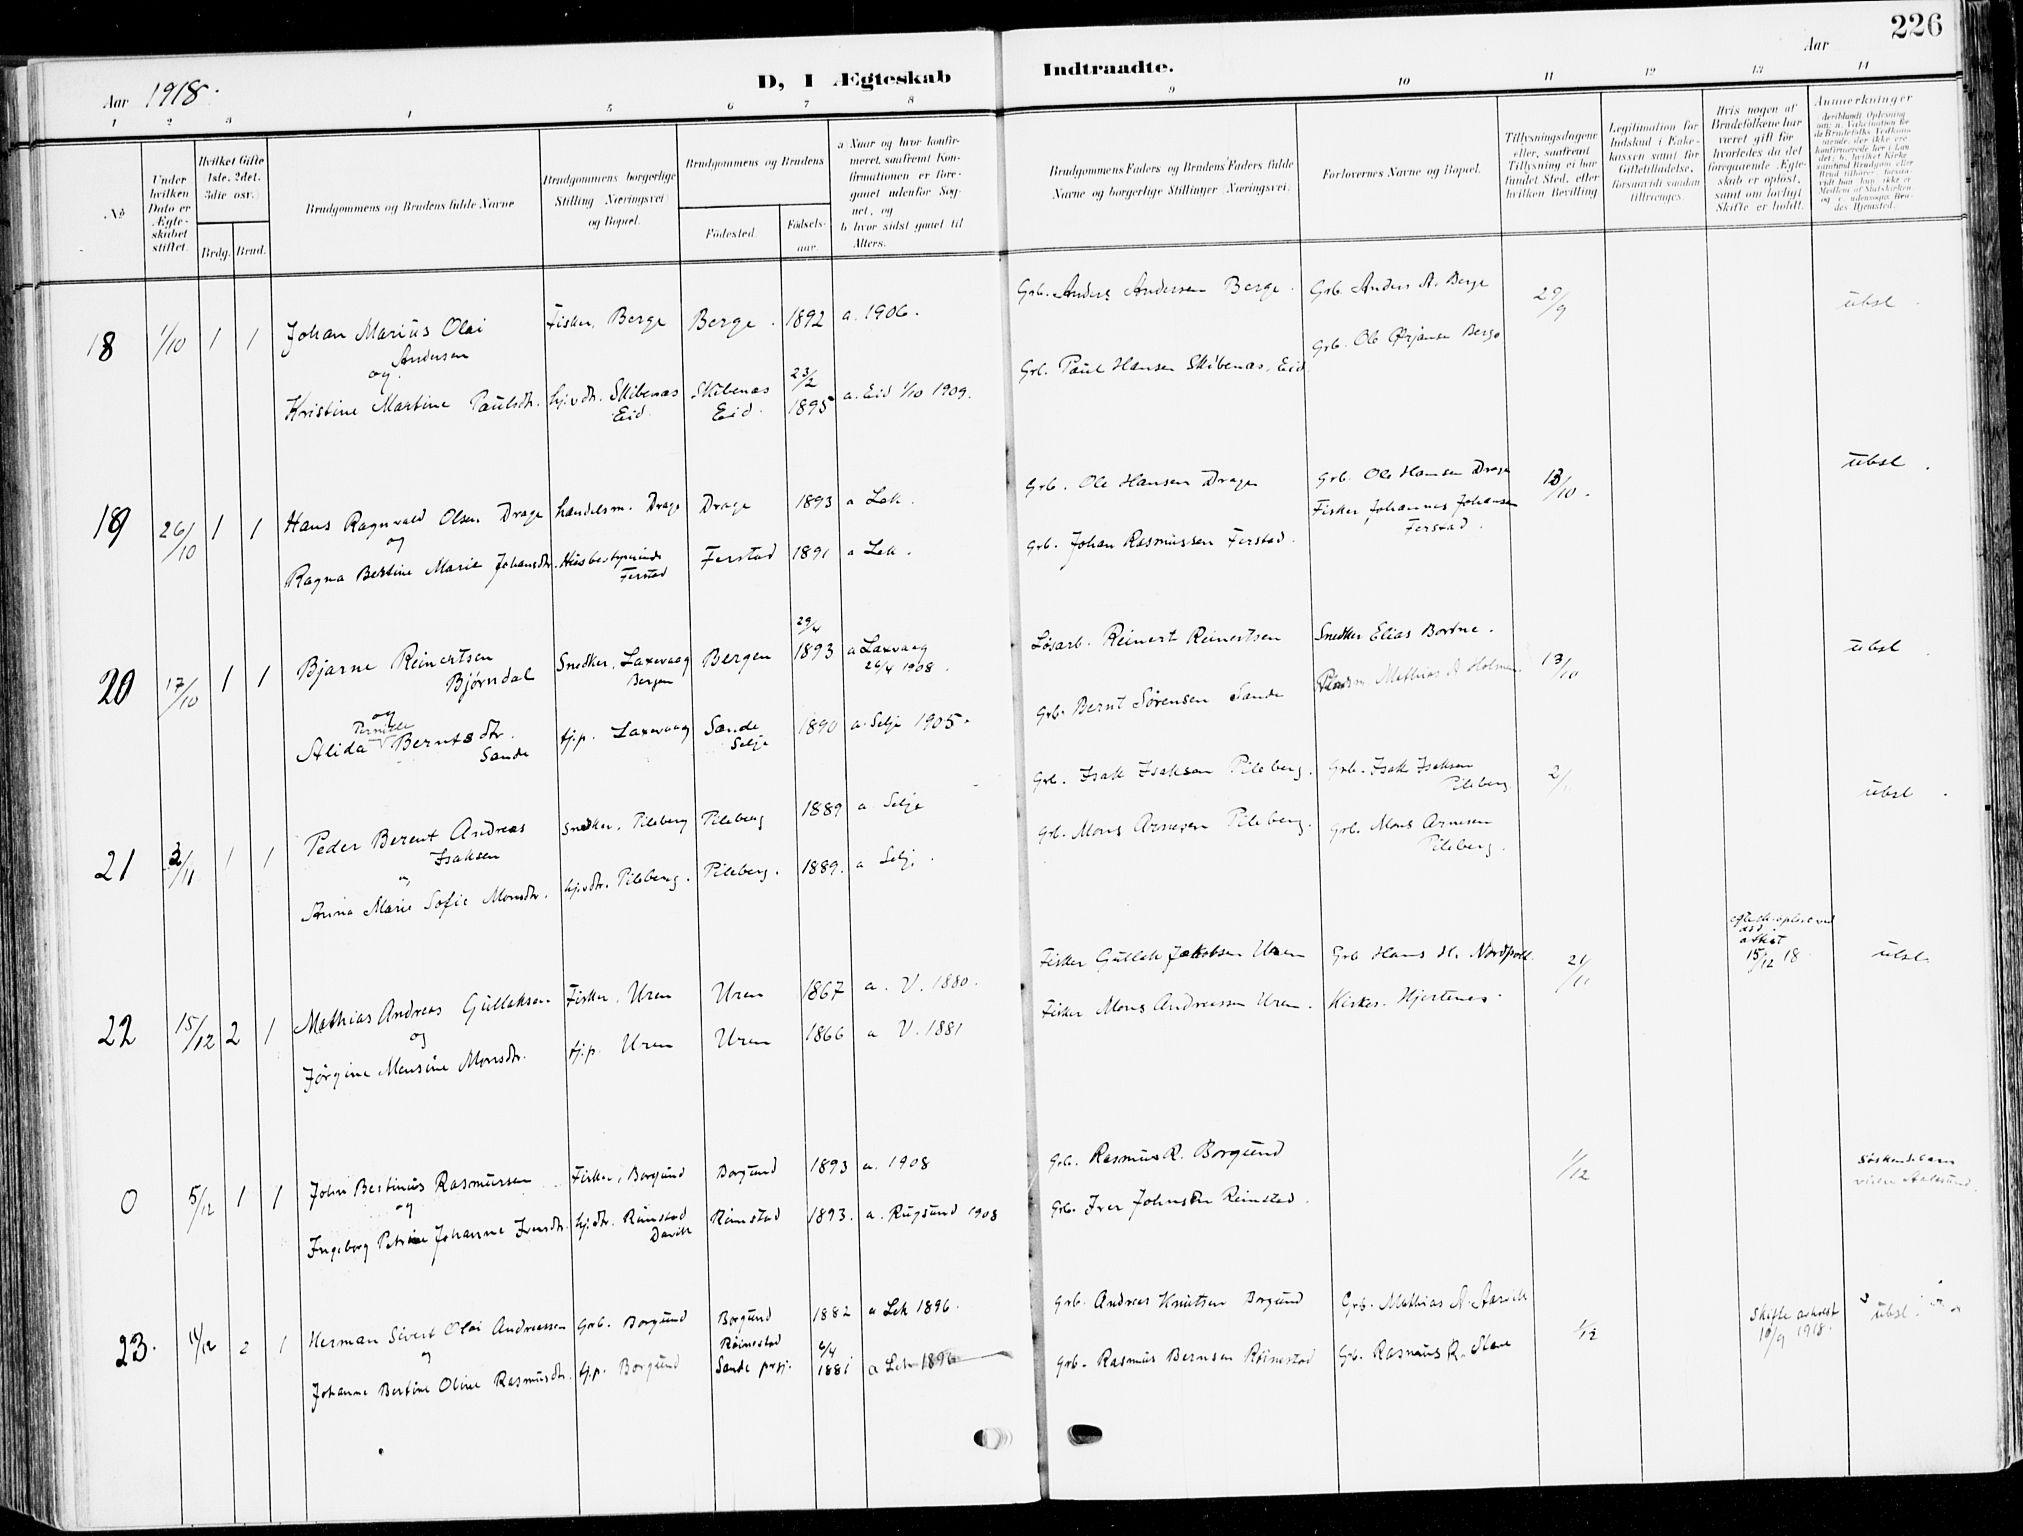 226
Aar 1918.
D, I Ægteskab Indtraadte.
Aar
1 2 3 4 5 6 7 8 9 10 11 12 13 14
No
Under hvilken Dato er Ægteskabet stiftet.
Hvilket Gifte 1ste, 2det, 3die osv.
Brdg. Brud.
Brudgommens og Brudens fulde Navne
Brudgommens borgerlige Stilling (Næringsvei) og Bopæl.
Brudgommens og Brudens
Födested.
Födselsaar.
a Naar og hvor konfirmeret, saafremt Konfirmationen er foregaaet udenfor Sognet, og
b hvor sidst gaaet til Alters.
Brudgommens Faders og Brudens Faders fulde Navne og borgerlige Stillinger (Næringsvei).
Forlovernes Navne og Bopæl.
Tillysningsdagene eller, saafremt Tillysning ei har fundet Sted, efter hvilken Bevilling
Legitimation for Indskud i Enkekassen samt for Giftetilladelse, forsaavidt saadan tiltrænges.
Hvis nogen af Brudefolkene har været gift för hvorledes da det foregaaende Ægteskab er oplöst, samt om lovligt Skifte er holdt.
Anmerkninger
18 1/10 1 1
Johan Marius Olai Andersen
og
Kristine Martine Paulsdtr.
Fisker, Berge Berge. 1892 a. 1906.
hj.v.dtr. Skibenæs Eid. Skibenæs Eid. 23/2 1895 a. Eid 1/10 1909.
Grb. Anders Andersen Berge. Grb. Anders A. Berge 29/9 ubsl.
Grb. Paul Hansen Skibenæs, Eid Grb. Ole Ørjansen Berge
19 26/10 1 1
Hans Ragnvald Olsen Drage handelsm. Drage Drage 1893 a Lek.
og
Ragna Bertine Marie Johansdtr. Husbestyrerinde Ferstad Ferstad 1891 a Lek.
Grb. Ole Hansen Drage Grb. Ole Hansen Drage 13/10. ubsl.
Grb. Johan Rasmussen Ferstad. Fisker Johannes Johansen Ferstad.
20 17/10 1 1
Bjarne Reinertsen Bjørndal Snedker, Laxevaag Bergen Bergen 29/4 1893 a Laxvaag 26/4 1908.
og
Alida Pernille Berntsdtr. Sande tj.p. Laxevaag Sande Selje 1890 a. Selje 1905.
Løsarb. Reinert Reinertsen Snedker Elias Bortne. 13/10 ubsl.
Grb. Bernt Sørensen Sande Mathias A Holmen.
21 3/11 1 1
Peder Berent Andreas Isaksen Snedker, Pileberg Pileberg 1889 a. Selje
og
Anna Marie Sofie Monsdtr. hj.v.dtr. Pileberg. Pileberg. 1889. a Selje.
Grb. Isak Isaksen Pileberg. Grb. Isak Isaksen Pileberg ubsl.
Grb. Mons Arnesen Pileberg. Grb. Mons Arnesen Pileberg.
22 15/12 2 1
Mathias Andreas Gullaksen Fisker, Uren Uren 1867 a. V. 1880.
og
Jørgine Monsine Monsdtr. tj.p. Uren Uren 1866 a V. 1881
Fisker Gullak Jakobsen Uren Grb Hans H. Nordpoll. 21/11 attest 15/12 18 ubsl.
Fisker Mons Andreassen Uren. Kirkes. Hjertenes.
0 5/12 1 1
John Bertinus Rasmussen Fisker, Borgund Borgund 1893 a. 1908
og
Ingeborg Petrine Johanne Iversdtr. hj.dtr. Rimstad Davik Rimstad 1893. a. Rugsund 1908
Grb. Rasmus R. Borgund 1/12 Søskendebarn viet Aalesund.
Grb. Iver Johnsen Reimstad.
23. 14/12 2 1
Herman Sivert Olai Andreassen Grb. Borgund Borgund 1882 a Lek 1896.
og
Johanne Bertine Oline Rasmusdtr. tj.p. Borgund Røinestad Sande prgj. 6/4 1881 a Lek 1896
Grb. Andreas Knutsen Borgund Grb. Mathias A. Aarvik 1/12 Skifte attest 10/9 1918. ubsl.
Grb. Rasmus Bernsen Røinestad Grb. Rasmus R.